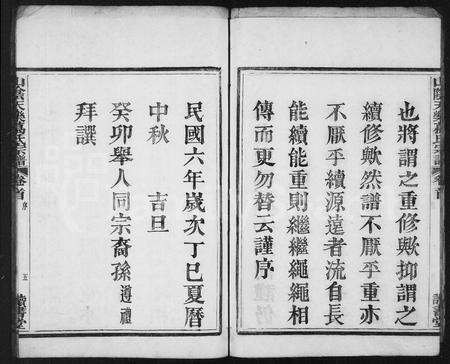 也將謂之重修歟抑謂之
續修歟然譜不厭乎重亦
不厭乎續源遠者流自長
能續能重則繼繼繩繩相
傳而更勿替云謹序
民國六年歲次丁巳夏曆
中秋 吉旦
癸卯舉人同宗裔孫遵禮
拜譔
山陰天樂 氏宗譜 卷首 序 五